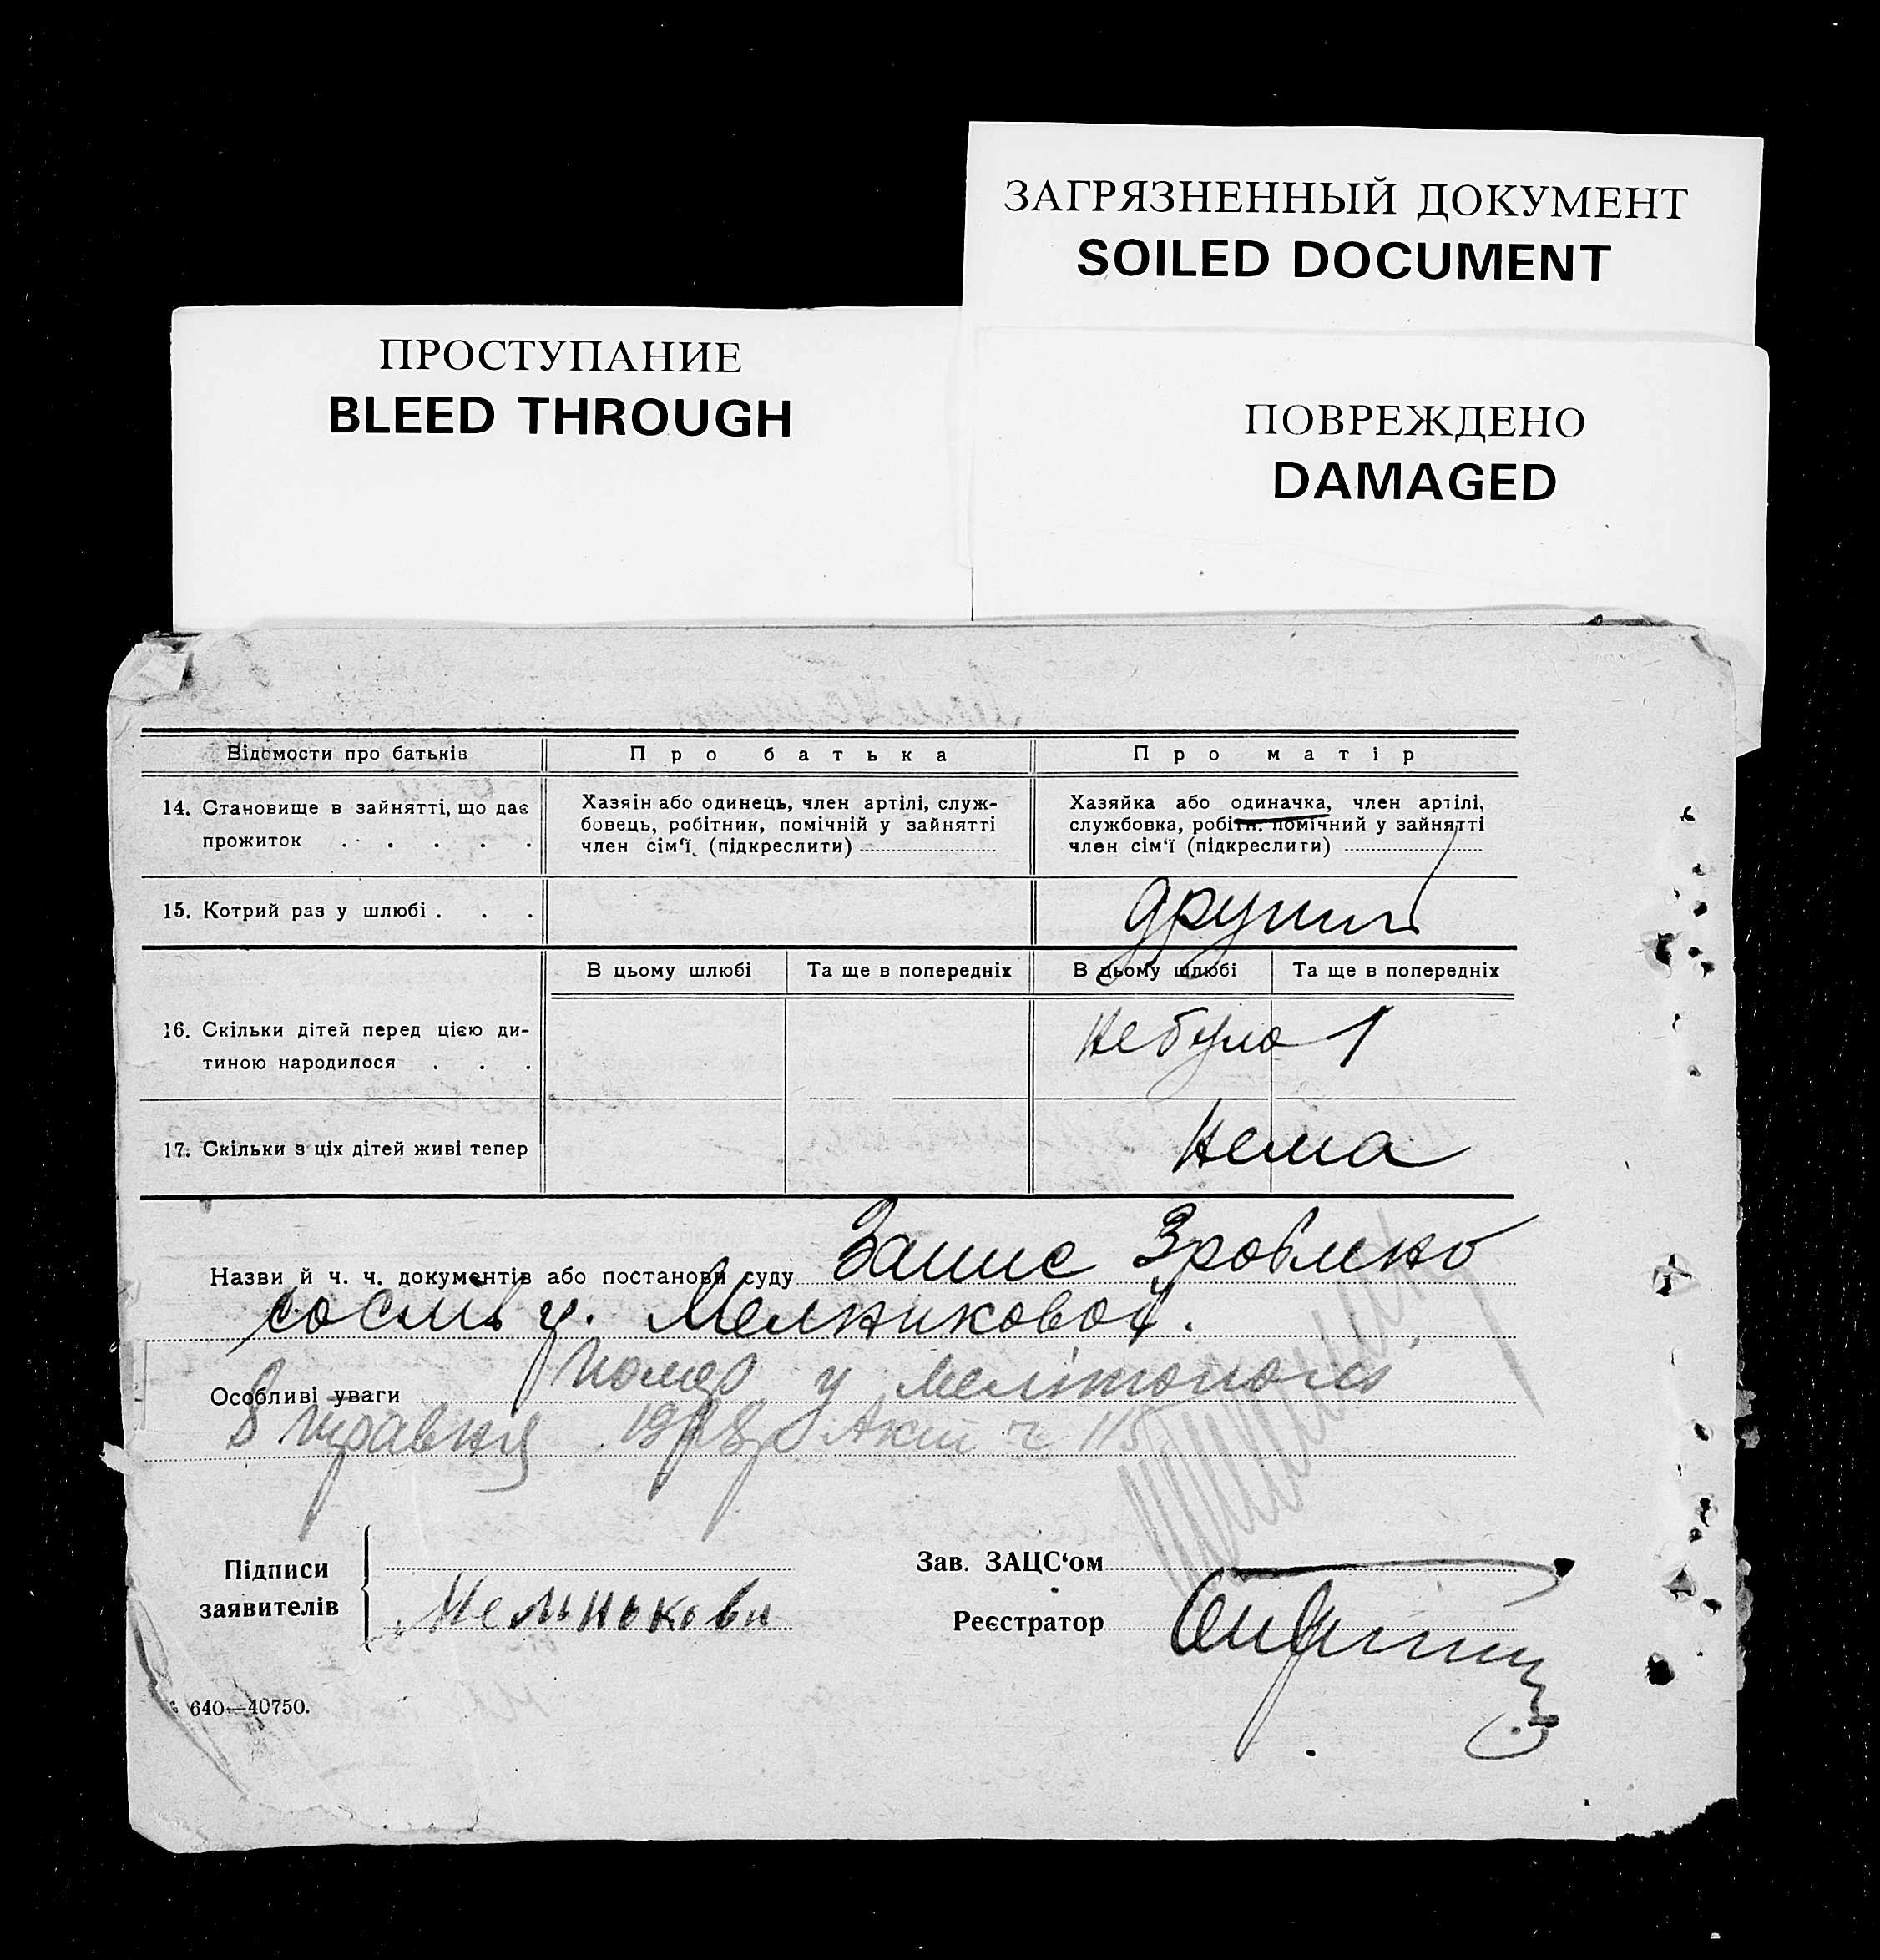 ЗАГРЯЗНЕННЫЙ ДОКУМЕНТ
SOILED DOCUMENT
ПРОСТУПАНИЕ
BLEED THROUGH
ПОВРЕЖДЕНО
DAMAGED
Відомости про батьків Про батька Про матір
14. Становище в зайнятті, що дає
прожиток . . . . .
Хазяін або одинець, член артілі, служ-
бовець, робітник, помічній у зайнятті
член сім'ї (підкреслити)
Хазяйка або одиначка, член артілі,
службовка, робітн. помічний у зайнятті
член сім'ї (підкреслити)
15. Котрий раз у шлюбі . . . другий
В цьому шлюбі Та ще в попередніх В цьому шлюбі Та ще в попередніх
16. Скільки дітей перед цією ди-
тиною народилося . . .
Небуло 1
17. Скільки з ціх дітей живі тепер Нема
Назви й ч. ч. документів або постанови суду Запис Зроблено
со слів г. Мелниковой.
Особливі уваги помер у Мелітополі
8 травня 1928 р Акт ч 115
Підписи
заявителів
Мельнікови
Зав. ЗАЦС'ом
Реєстратор
640—40750.